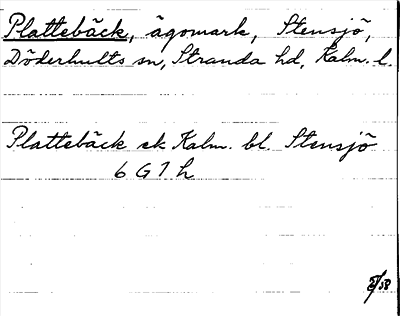 Plattebäck, ägomark, Stensjö,
Döderhults sn, Stranda hd, Kalm. l.
Plattebäck ek Kalm. bl. Stensjö
6 G 7 h